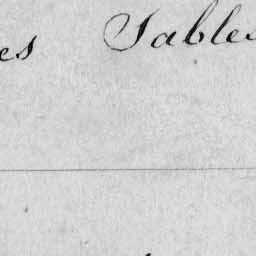 es Tables